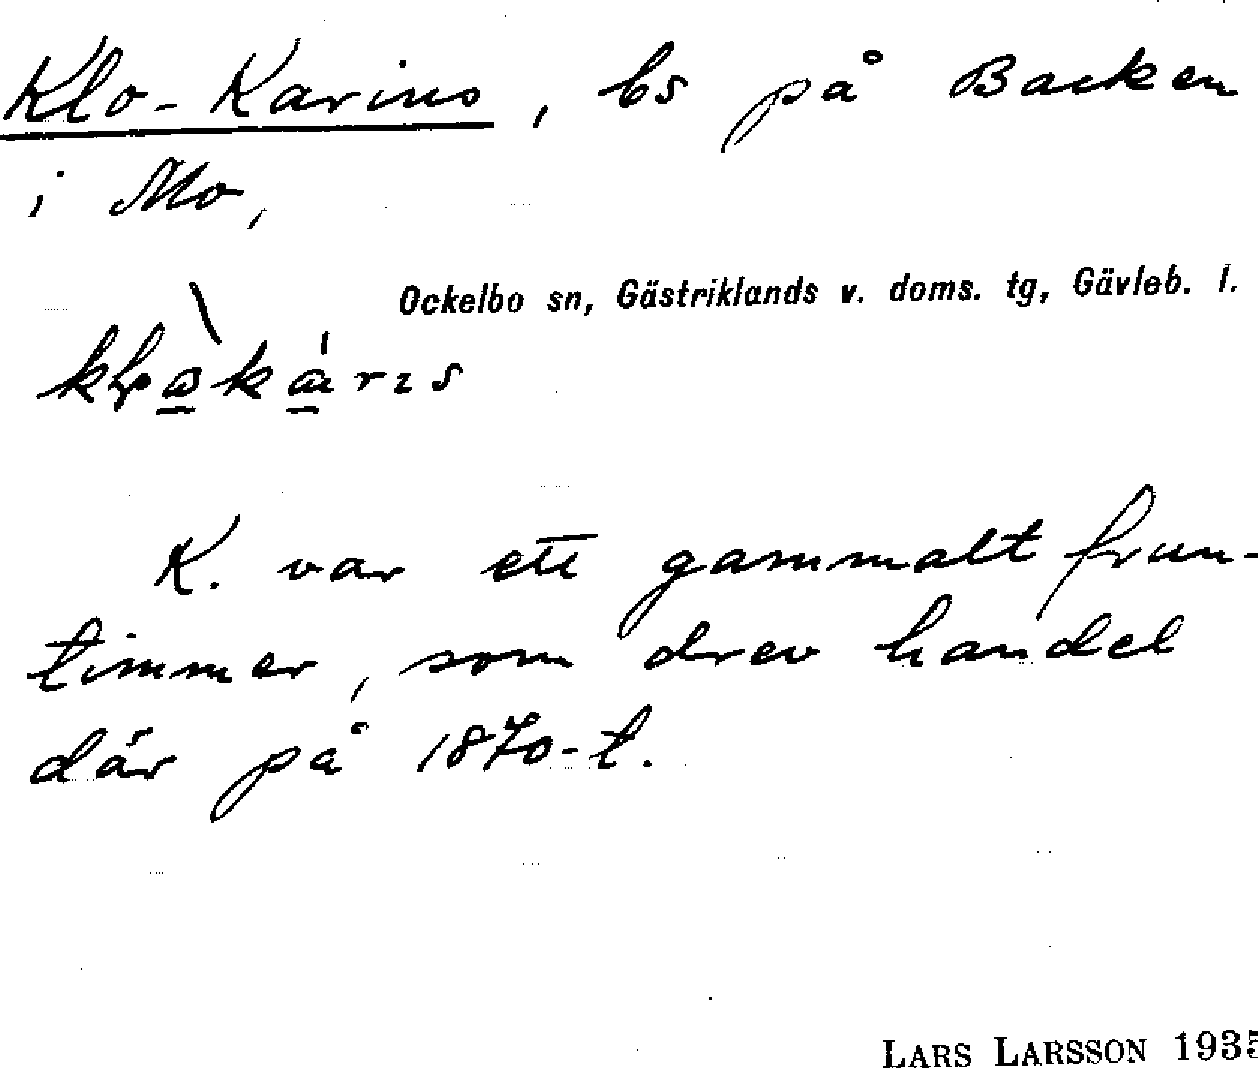 Klo-Karins, bs på Backen
i Mo,
Ockelbo sn, Gästriklands v. doms. tg, Gävleb. l.
K. var ett gammalt frun-
timmer, som drev handel
där på 1870-t.
LARS LARSSON 1935